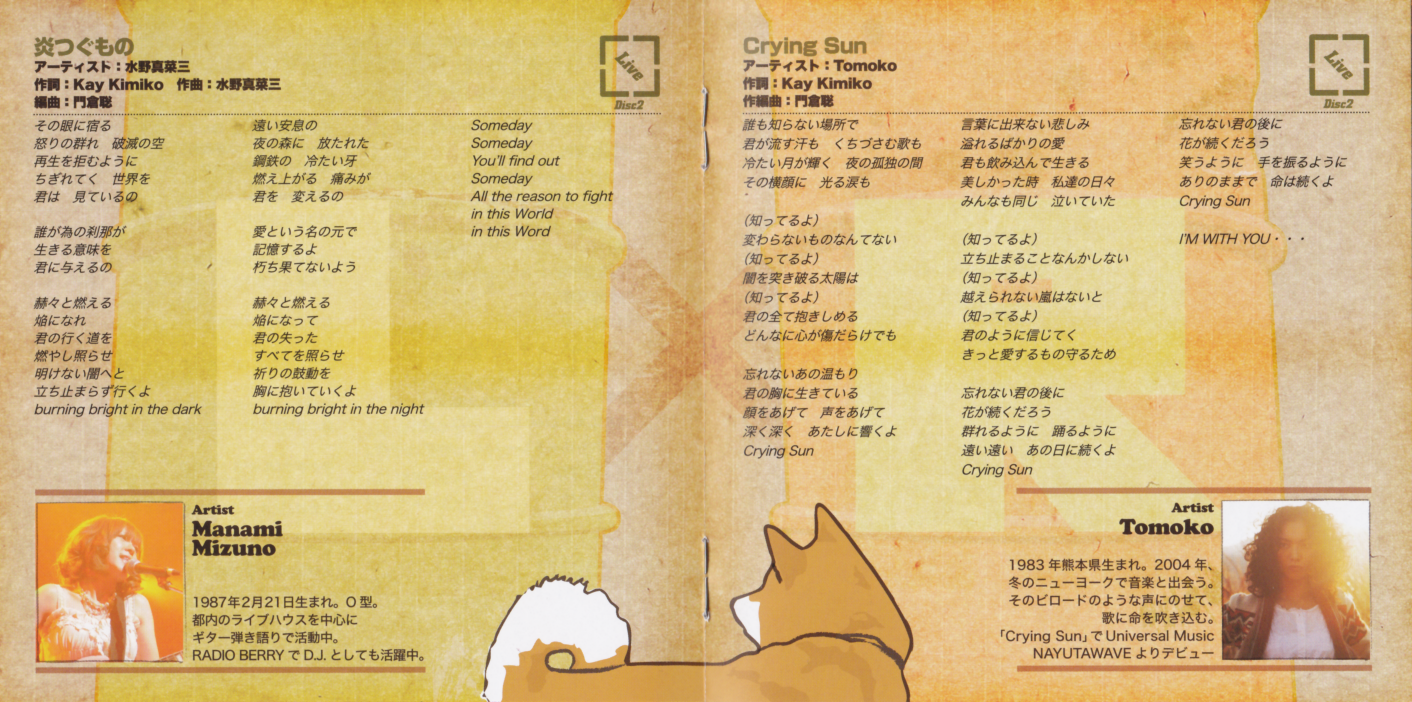 炎つぐもの
アーティスト：水野真菜三
作詞：Kay Kimiko　作曲：水野真菜三
編曲：門倉聡
Live
Disc2
その眼に宿る
怒りの群れ　破滅の空
再生を拒むように
ちぎれてく　世界を
君は　見ているの

誰が為の刹那が
生きる意味を
君に与えるの

赫々と燃える
焔になれ
君の行く道を
燃やし照らせ
明けない闇へと
立ち止まらず行くよ
burning bright in the dark

遠い安息の
夜の森に　放たれた
鋼鉄の　冷たい牙
燃え上がる　痛みが
君を　変えるの

愛という名の元で
記憶するよ
朽ち果てないよう

赫々と燃える
焔になって
君の失った
すべてを照らせ
祈りの鼓動を
胸に抱いていくよ
burning bright in the night

Someday
Someday
You'll find out
Someday
All the reason to fight
in this World
in this Word

Artist
Manami
Mizuno
1987年2月21日生まれ。O 型。
都内のライブハウスを中心に
ギター弾き語りで活動中。
RADIO BERRY で D.J. としても活躍中。

Crying Sun
アーティスト：Tomoko
作詞：Kay Kimiko
作編曲：門倉聡
Live
Disc2
誰も知らない場所で
君が流す汗も　くちづさむ歌も
冷たい月が輝く　夜の孤独の間
その横顔に　光る涙も

（知ってるよ）
変わらないものなんてない
（知ってるよ）
闇を突き破る太陽は
（知ってるよ）
君の全て抱きしめる
どんなに心が傷だらけでも

忘れないあの温もり
君の胸に生きている
顔をあげて　声をあげて
深く深く　あたしに響くよ
Crying Sun

言葉に出来ない悲しみ
溢れるばかりの愛
君も飲み込んで生きる
美しかった時　私達の日々
みんなも同じ　泣いていた

（知ってるよ）
立ち止まることなんかしない
（知ってるよ）
越えられない嵐はないと
（知ってるよ）
君のように信じてく
きっと愛するもの守るため

忘れない君の後に
花が続くだろう
群れるように　踊るように
遠い遠い　あの日に続くよ
Crying Sun

忘れない君の後に
花が続くだろう
笑うように　手を振るように
ありのままで　命は続くよ
Crying Sun

I'M WITH YOU・・・

Artist
Tomoko
1983 年熊本県生まれ。2004 年、
冬のニューヨークで音楽と出会う。
そのビロードのような声にのせて、
歌に命を吹き込む。
「Crying Sun」で Universal Music
NAYUTAWAVE よりデビュー